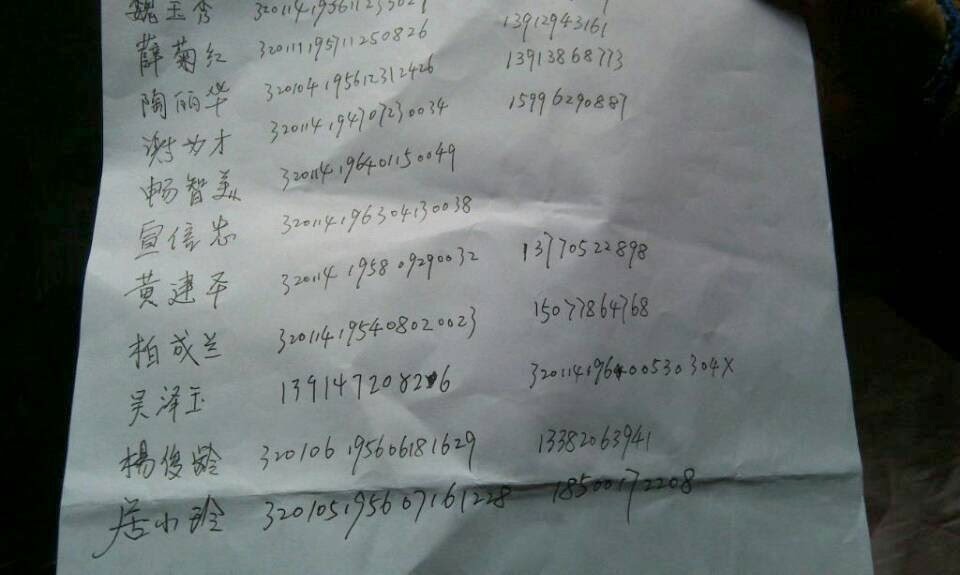 魏玉秀
薛菊红 320111195711250826 13912943161
陶丽华 320104195612312426 13913868773
320114194707230034 15996290887
畅智美 320114196401150049
宣信忠 320114196304130038
黄建平 320114195809290032 13770522898
柏成兰 320114195408020023 15077864768
吴泽玉
楊俊龄 320106195606181629 13382063941
居小玲 320105195607161228 18500172208